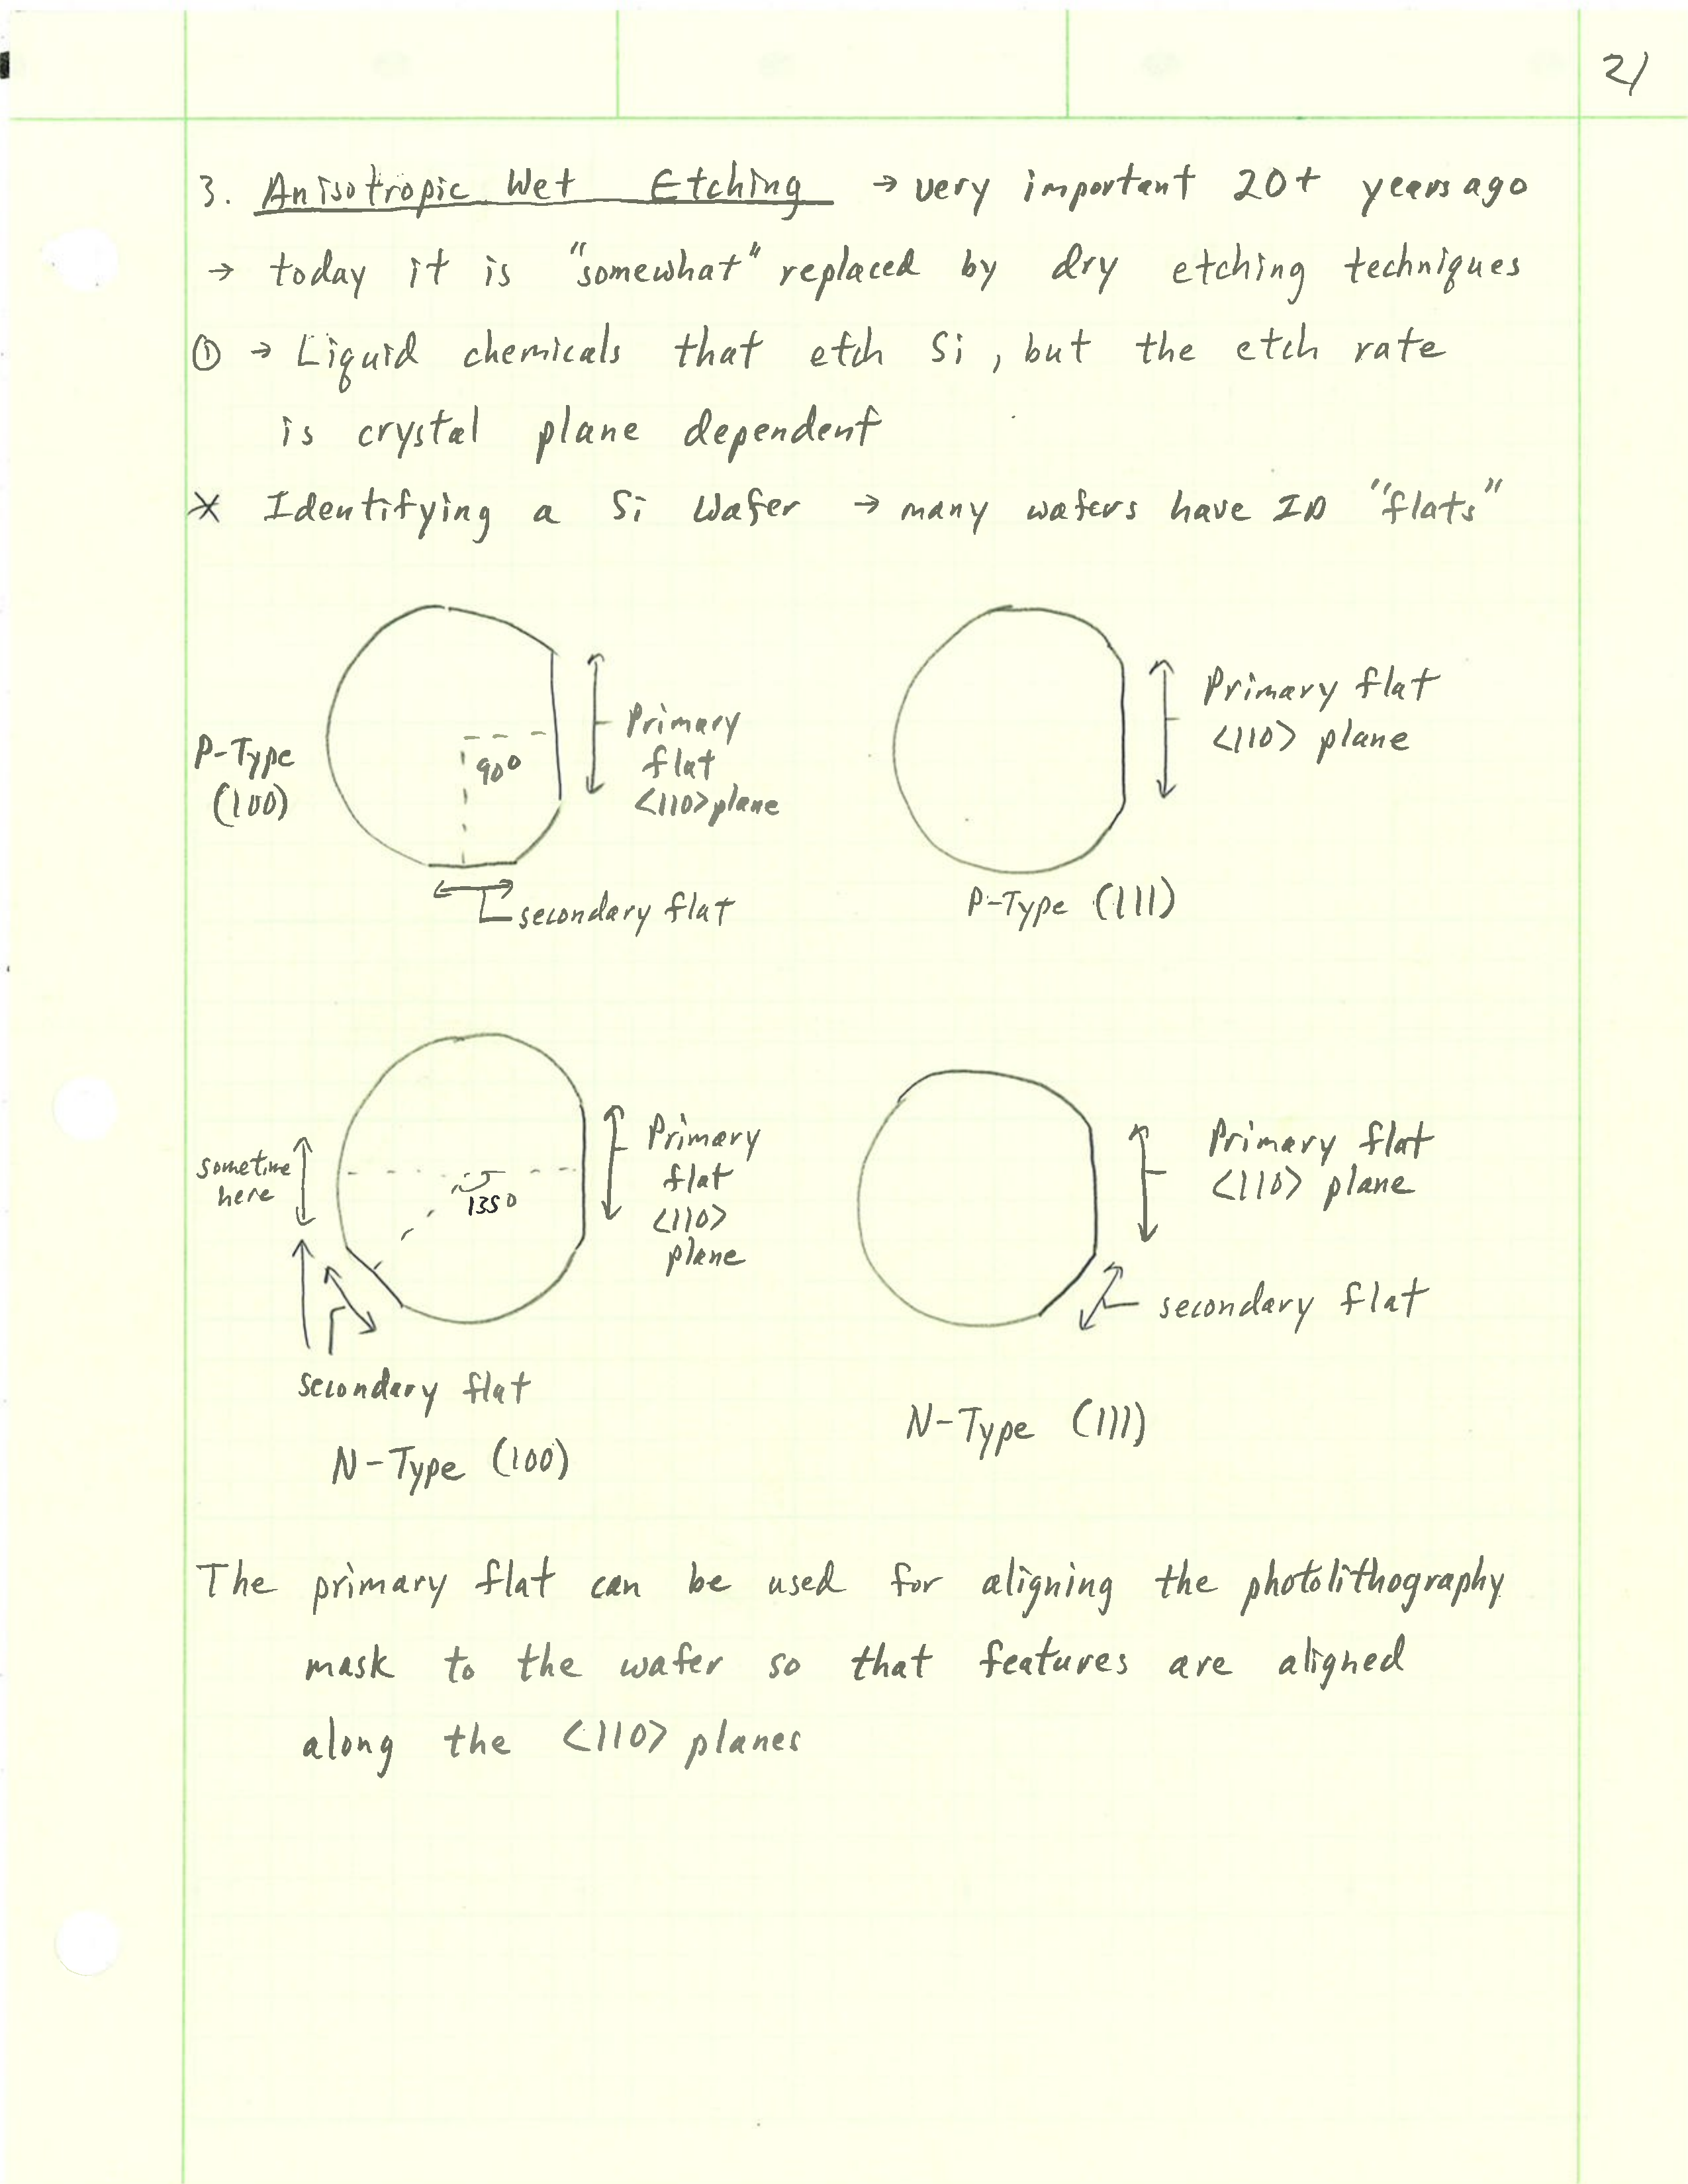 21
3. Anisotropic Wet Etching → very important 20+ years ago
→ today it is "somewhat" replaced by dry etching techniques
① → Liquid chemicals that etch Si, but the etch rate
is crystal plane dependent
* Identifying a Si Wafer → many wafers have ID "flats"
P-Type
(100)
90°
Primary
flat
<110> plane
secondary flat
Primary flat
<110> plane
P-Type (111)
sometime
here
135°
Primary
flat
<110>
plane
secondary flat
N-Type (100)
Primary flat
<110> plane
secondary flat
N-Type (111)
The primary flat can be used for aligning the photolithography
mask to the wafer so that features are aligned
along the <110> planes